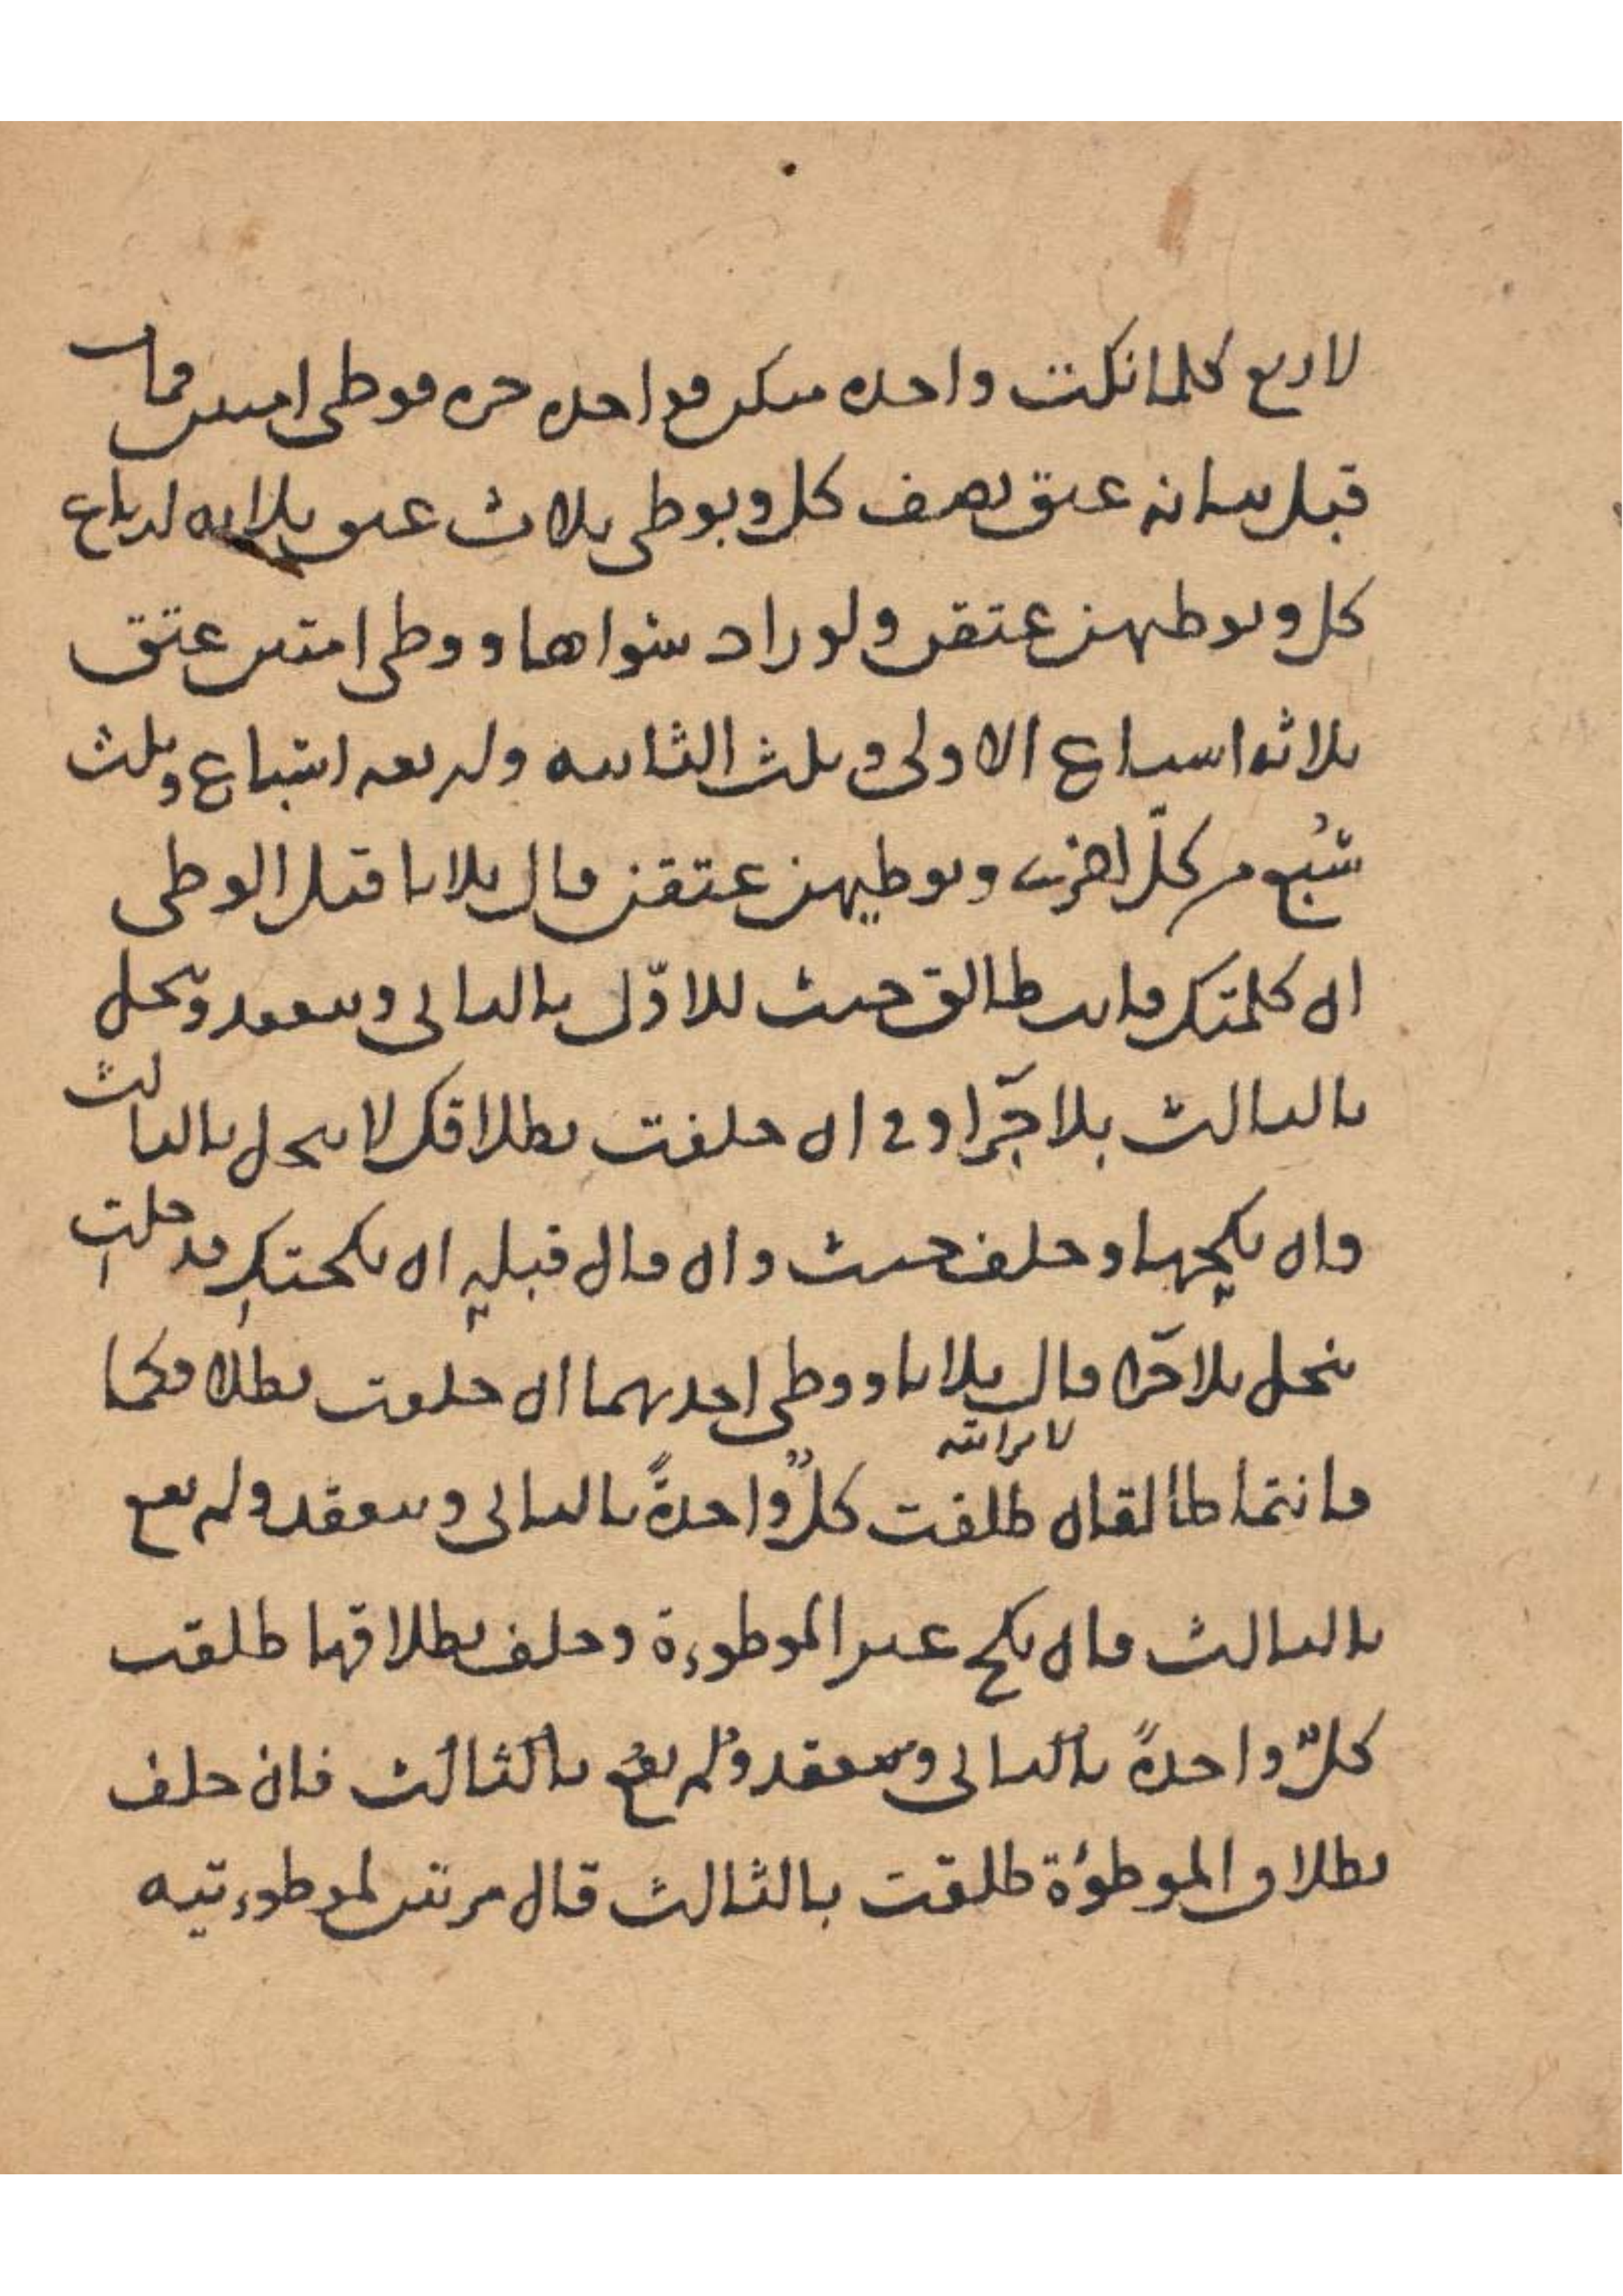 لاربع كلما نكت واحده منكن فواحده حره فوطى امتين فمات
قبل بيانه عتق نصف كل وبوطى ثلاث عتق ثلاثه ارباع
كل وبوطيهن عتقن ولو زاد سواها ووطى امتين عتق
ثلاثه اسباع الاولى وثلث الثانيه واربعه اسباع وثلث
سُبُع من كل اخرى وبوطيهن عتقن قال ثلاثا قبل الوطى
ان كلمتك فانت طالق حنث للاوّل بالثانى وينعقد وينحل
بالثالث بلا جزا وفى ان حلفت بطلاقك لا ينحل بالثالث
وان نكحها وحلف حنث وان قال قبليه ان نكحتك فدخلت
ينحل بلا جزا قال ثلاثا ووطى احديهما ان حلفت بطلاقكما
فانتما طالقان طلقت كلٌّ واحدةً بالثانى وينعقد ولم يقع
بالثالث فان نكح غير الموطوءة وحلف بطلاقها طلقت
كلٌّ واحدةً بالثانى وينعقد ولم يقع بالثالث فان حلف
بطلاق الموطوءة طلقت بالثالث قال مرتين لموطوءتيه